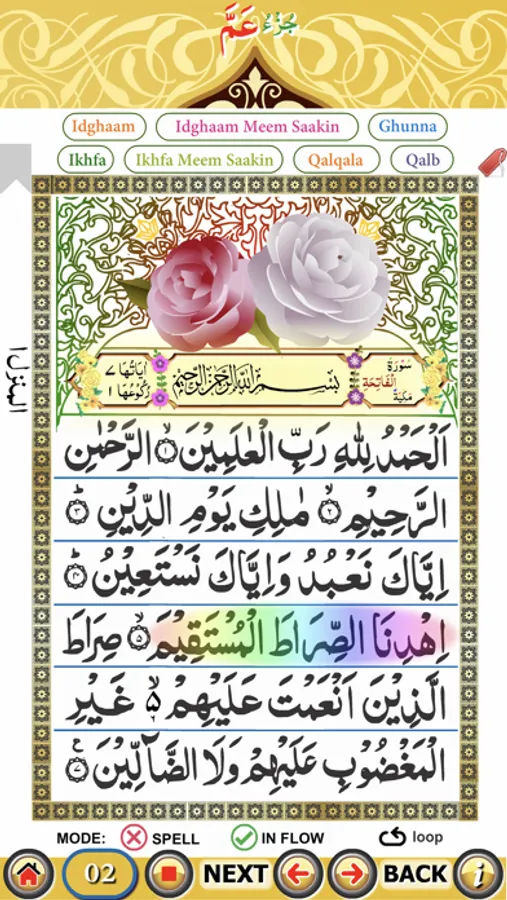 جُزْءُ عَمَّ
Idghaam Idghaam Meem Saakin Ghunna
Ikhfa Ikhfa Meem Saakin Qalqala Qalb
المنزل ١
سُوْرَةُ الْفَاتِحَةِ مَكِّيَّةٌ
بِسْمِ اللهِ الرَّحْمٰنِ الرَّحِيْمِ
اٰيَاتُهَا ٧
رُكُوْعُهَا ١
اَلْحَمْدُ لِلّٰهِ رَبِّ الْعٰلَمِيْنَ ۝١ الرَّحْمٰنِ
الرَّحِيْمِ ۝٢ مٰلِكِ يَوْمِ الدِّيْنِ ۝٣ؕ
اِيَّاكَ نَعْبُدُ وَاِيَّاكَ نَسْتَعِيْنُ ۝٤ؕ
اِهْدِنَا الصِّرَاطَ الْمُسْتَقِيْمَ ۝٥ صِرَاطَ
الَّذِيْنَ اَنْعَمْتَ عَلَيْهِمْ ۵ غَيْرِ
الْمَغْضُوْبِ عَلَيْهِمْ وَلَا الضَّآلِّيْنَ ۝٧ ع
MODE: SPELL IN FLOW loop
02 NEXT BACK i